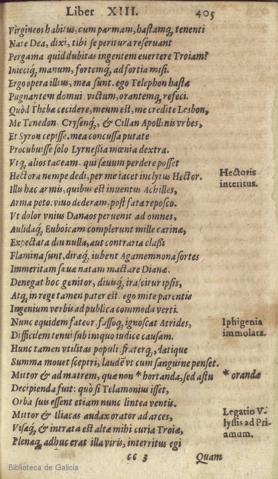 Liber XIII. 405
Virgineos habitus, cum parmam, hastamq, tenenti
Nate Dea, dixi, tibi se peritura reseruant
Pergama quid dubitas ingentem euertere Troiam?
Inieciq, manum, fortemq, ad fortia misi.
Ergo opera illius, mea sunt. ego Telephon hasta
Pugnantem domui victum, orantemq, refeci.
Quòd Thebæ cecidere, meum est, me credite Lesbon,
Me Tenedon, Crysenq,, & Cillan Apollinis vrbes,
Et Scyron cepisse. mea concussa putate
Procubuisse solo Lyrnesia mœnia dextra.
Vtq, alios taceam. qui sæuum perdere posset
Hectora nempe dedi, per me iacet inclytus Hector.
Hectoris
interitus.
Illu hæc armis, quibus est inuentus Achilles,
Arma peto. viuo dederam, post fata reposco.
Vt dolor vnius Danaos peruenit ad omnes,
Aulidaq, Euboicam complerunt mille carinæ,
Expectata diu nulla, aut contraria classi
Flamina sunt, diræq, iubent Agamemnona sortes
Immeritam sæuæ natam mactare Dianæ.
Denegat hoc genitor, diuisq, irascitur ipsis,
Atq, in rege tamen pater est. ego mite parentis
Ingenium verbis ad publica commoda verti.
Nunc equidem fateor, fassoq, ignoscat Atrides,
Iphigenia
immolata.
Difficilem tenui sub iniquo iudice causam.
Hunc tamen vtilitas populi, fraterq,, datique
Summa mouet sceptri, laudē vt cum sanguine penset.
Mittor & ad matrem, quæ non * hortanda, sed astu
* orandæ
Decipienda fuit: quò si Telamonius isset,
Orba suis essent etiam nunc lintea ventis.
Mittor & Iliacas audax orator ad arces,
Legatio V-
lyssis ad Pri-
amum.
Visaq, & intrata est altæ mihi curia Troiæ,
Plenaq, adhuc erat illa viris, interritus egi
cc 3 Quam
Biblioteca de Galicia